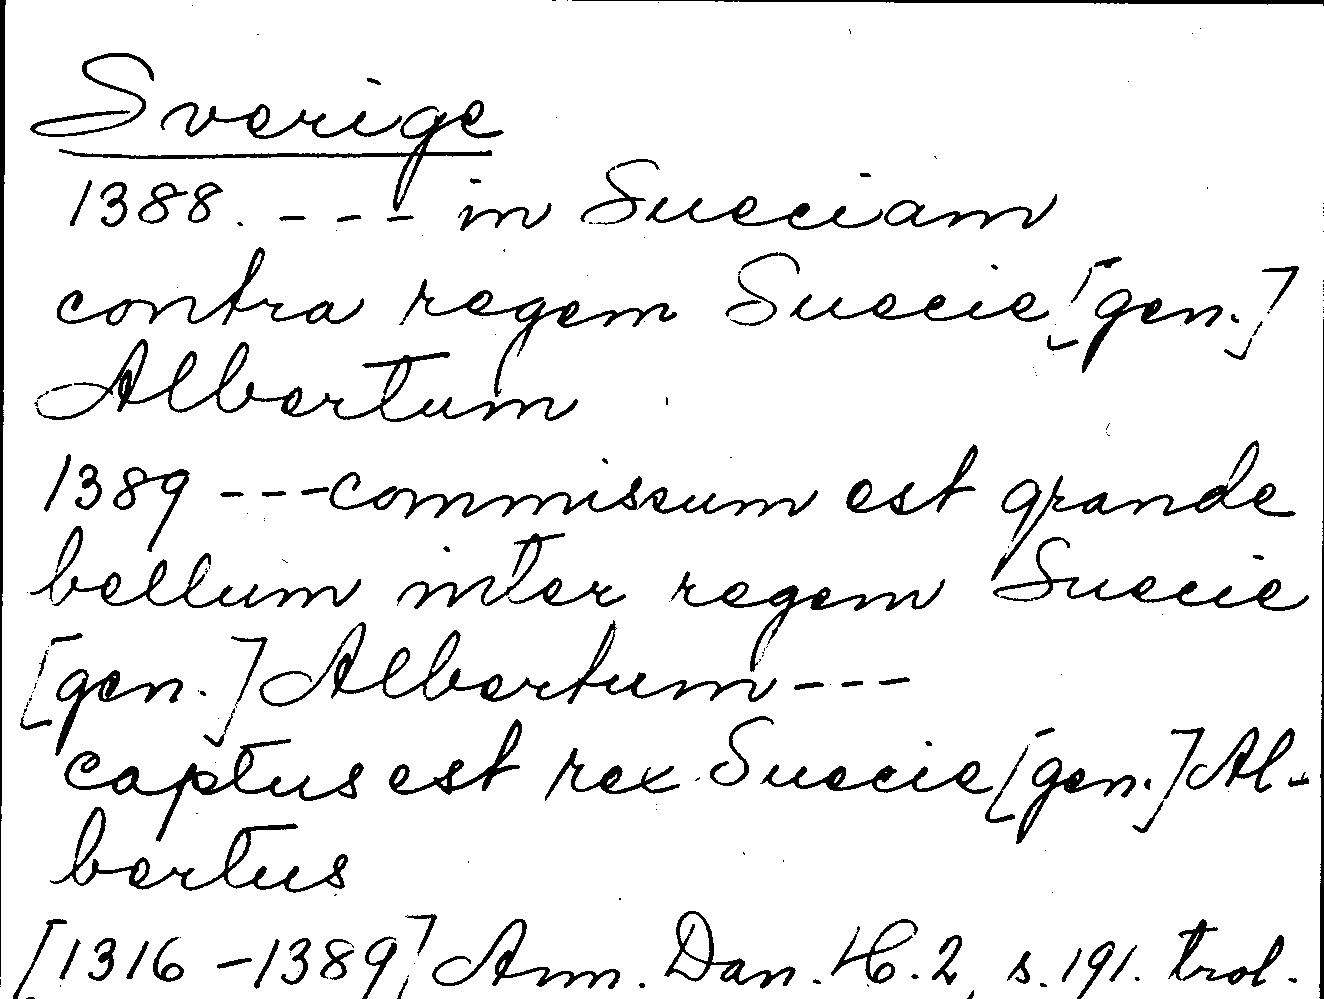 Sverige
1388. - - - in Sueciam
contra regem Suecie [gen.]
Albertum
1389 - - - commissum est grande
bellum inter regem Suecie
[gen.] Albertum - - -
captus est rex Suecie [gen.] Al-
bertus
[1316 - 1389] Ann. Dan. H. 2, s. 191. trol.